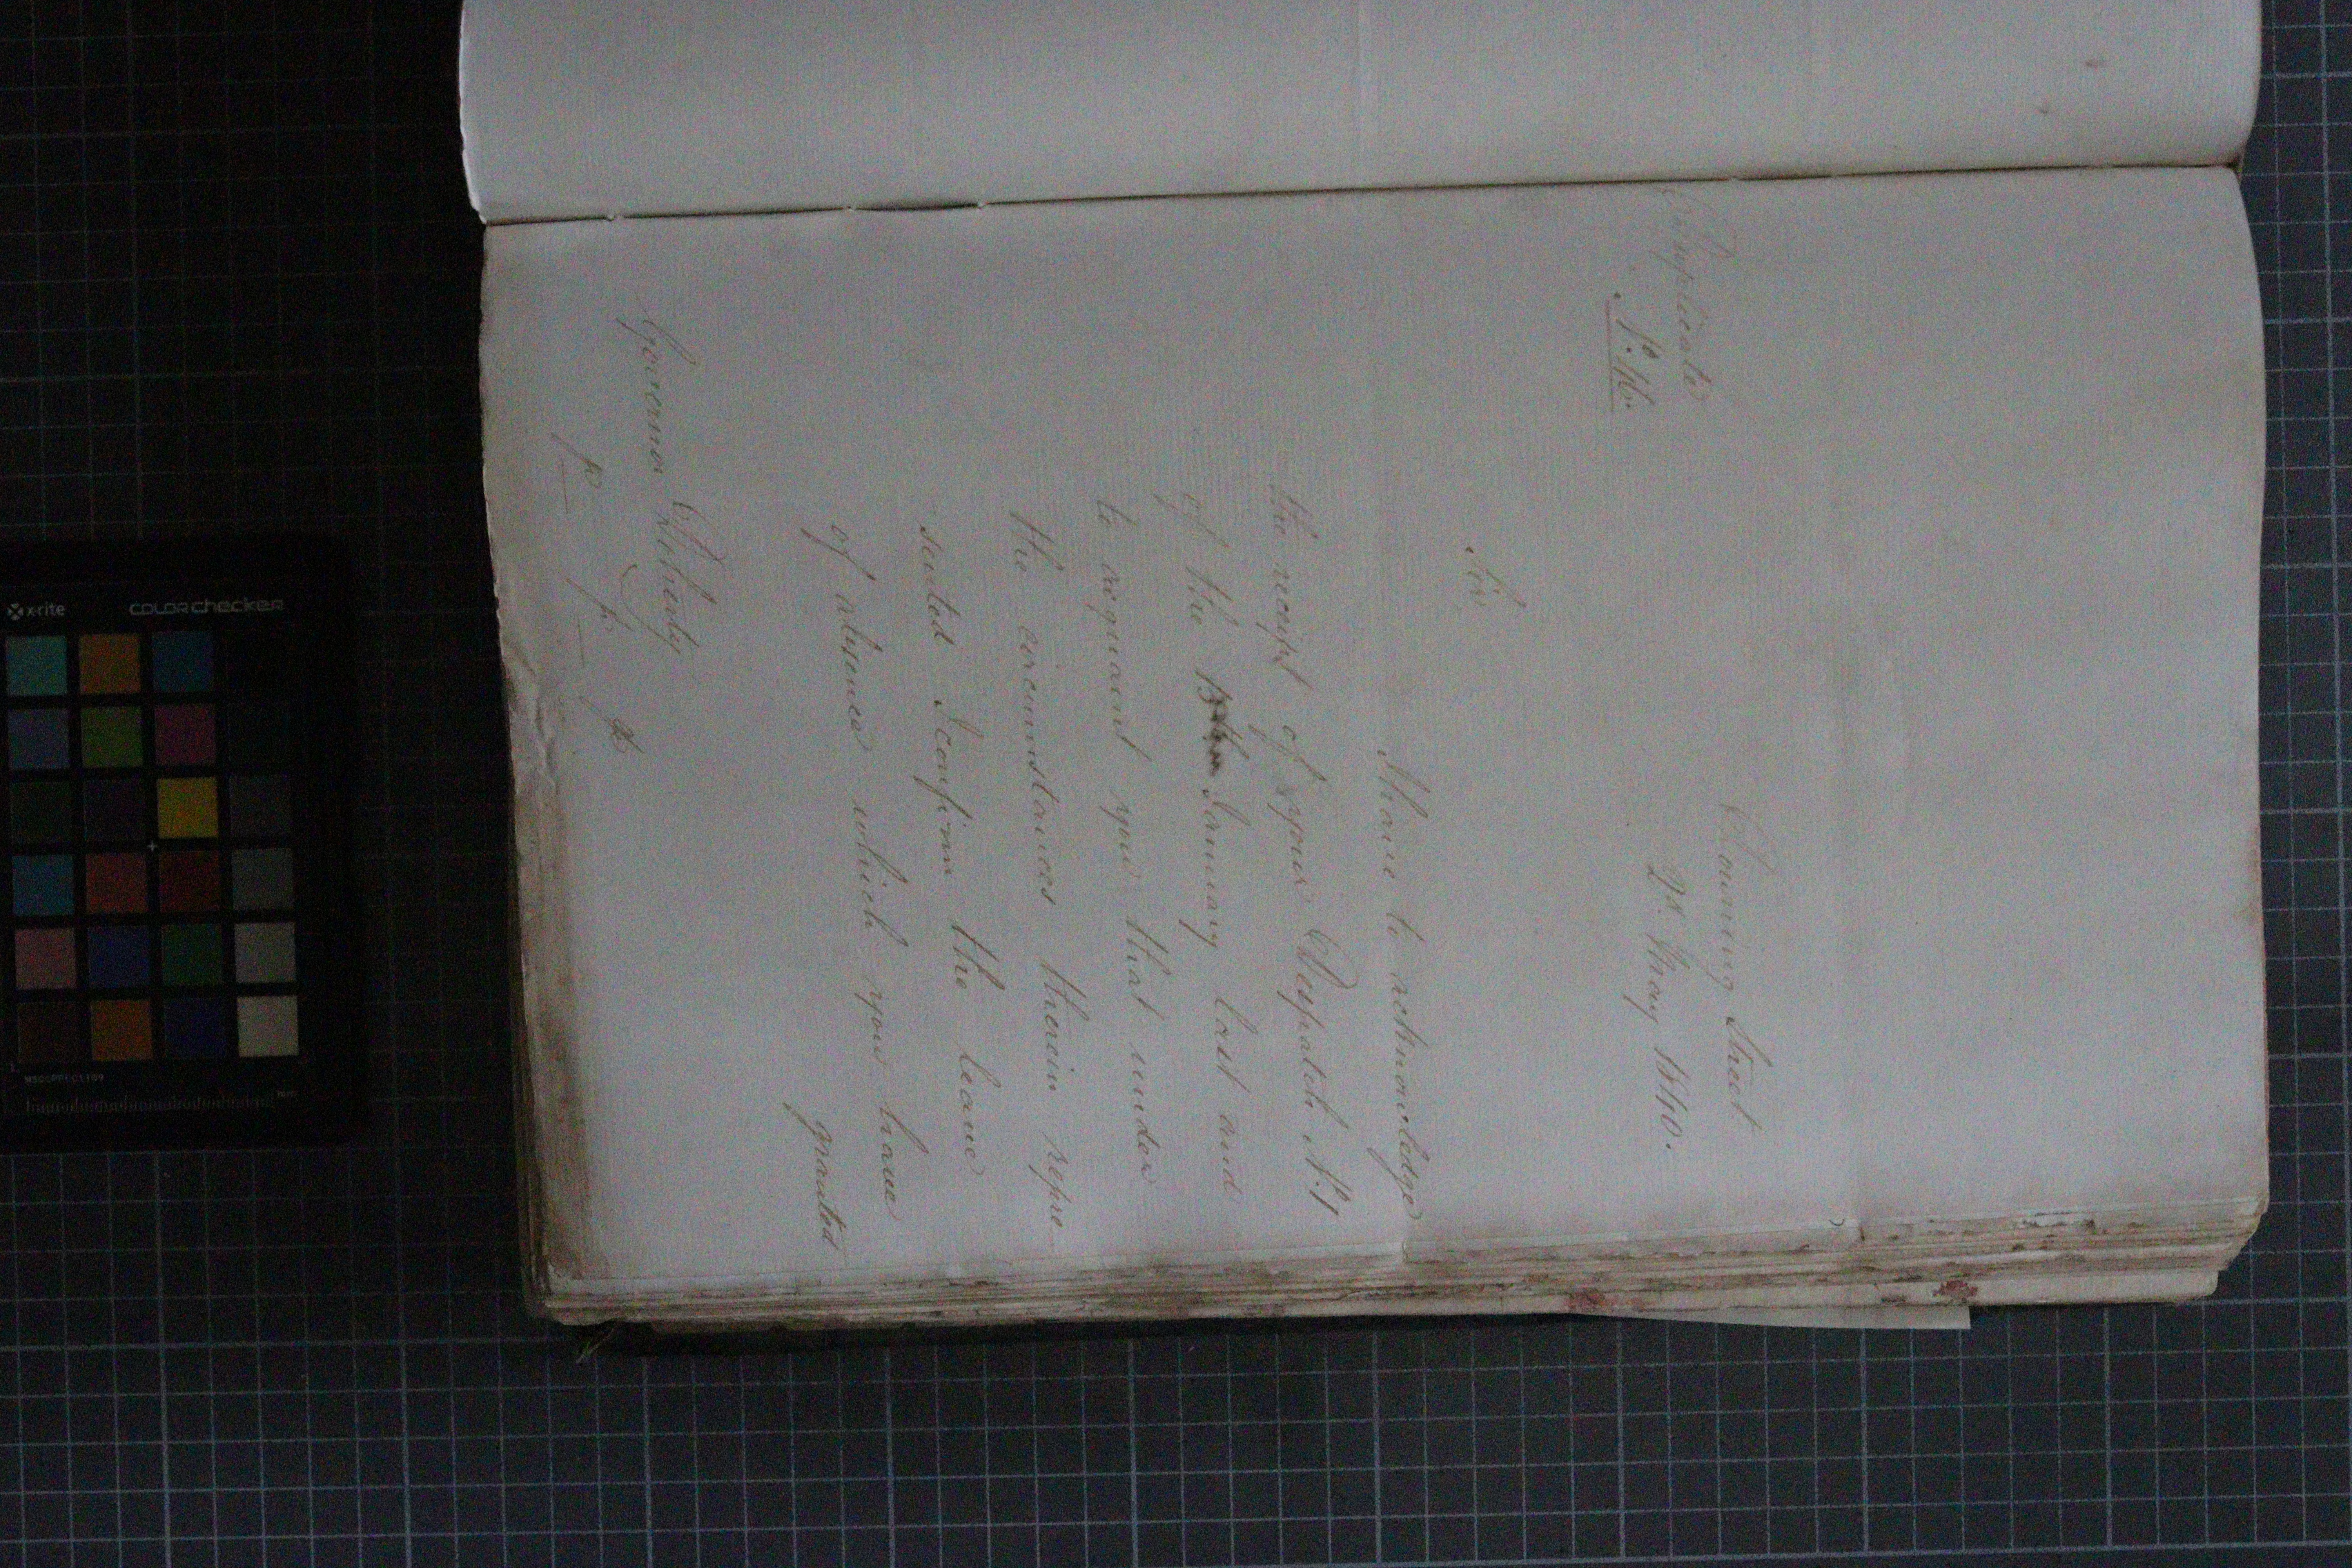 Duplicate
No. 16.
Downing Street
28. May 1840.
Sir,
I have to acknowledge
the receipt of your Despatch No. 1
of the January last and
to acquaint you that under
the circumstances therein repre
sented I confirm the leave
of absence which you have
granted
Governor Doherty
&c &c &c
x-rite
colorchecker